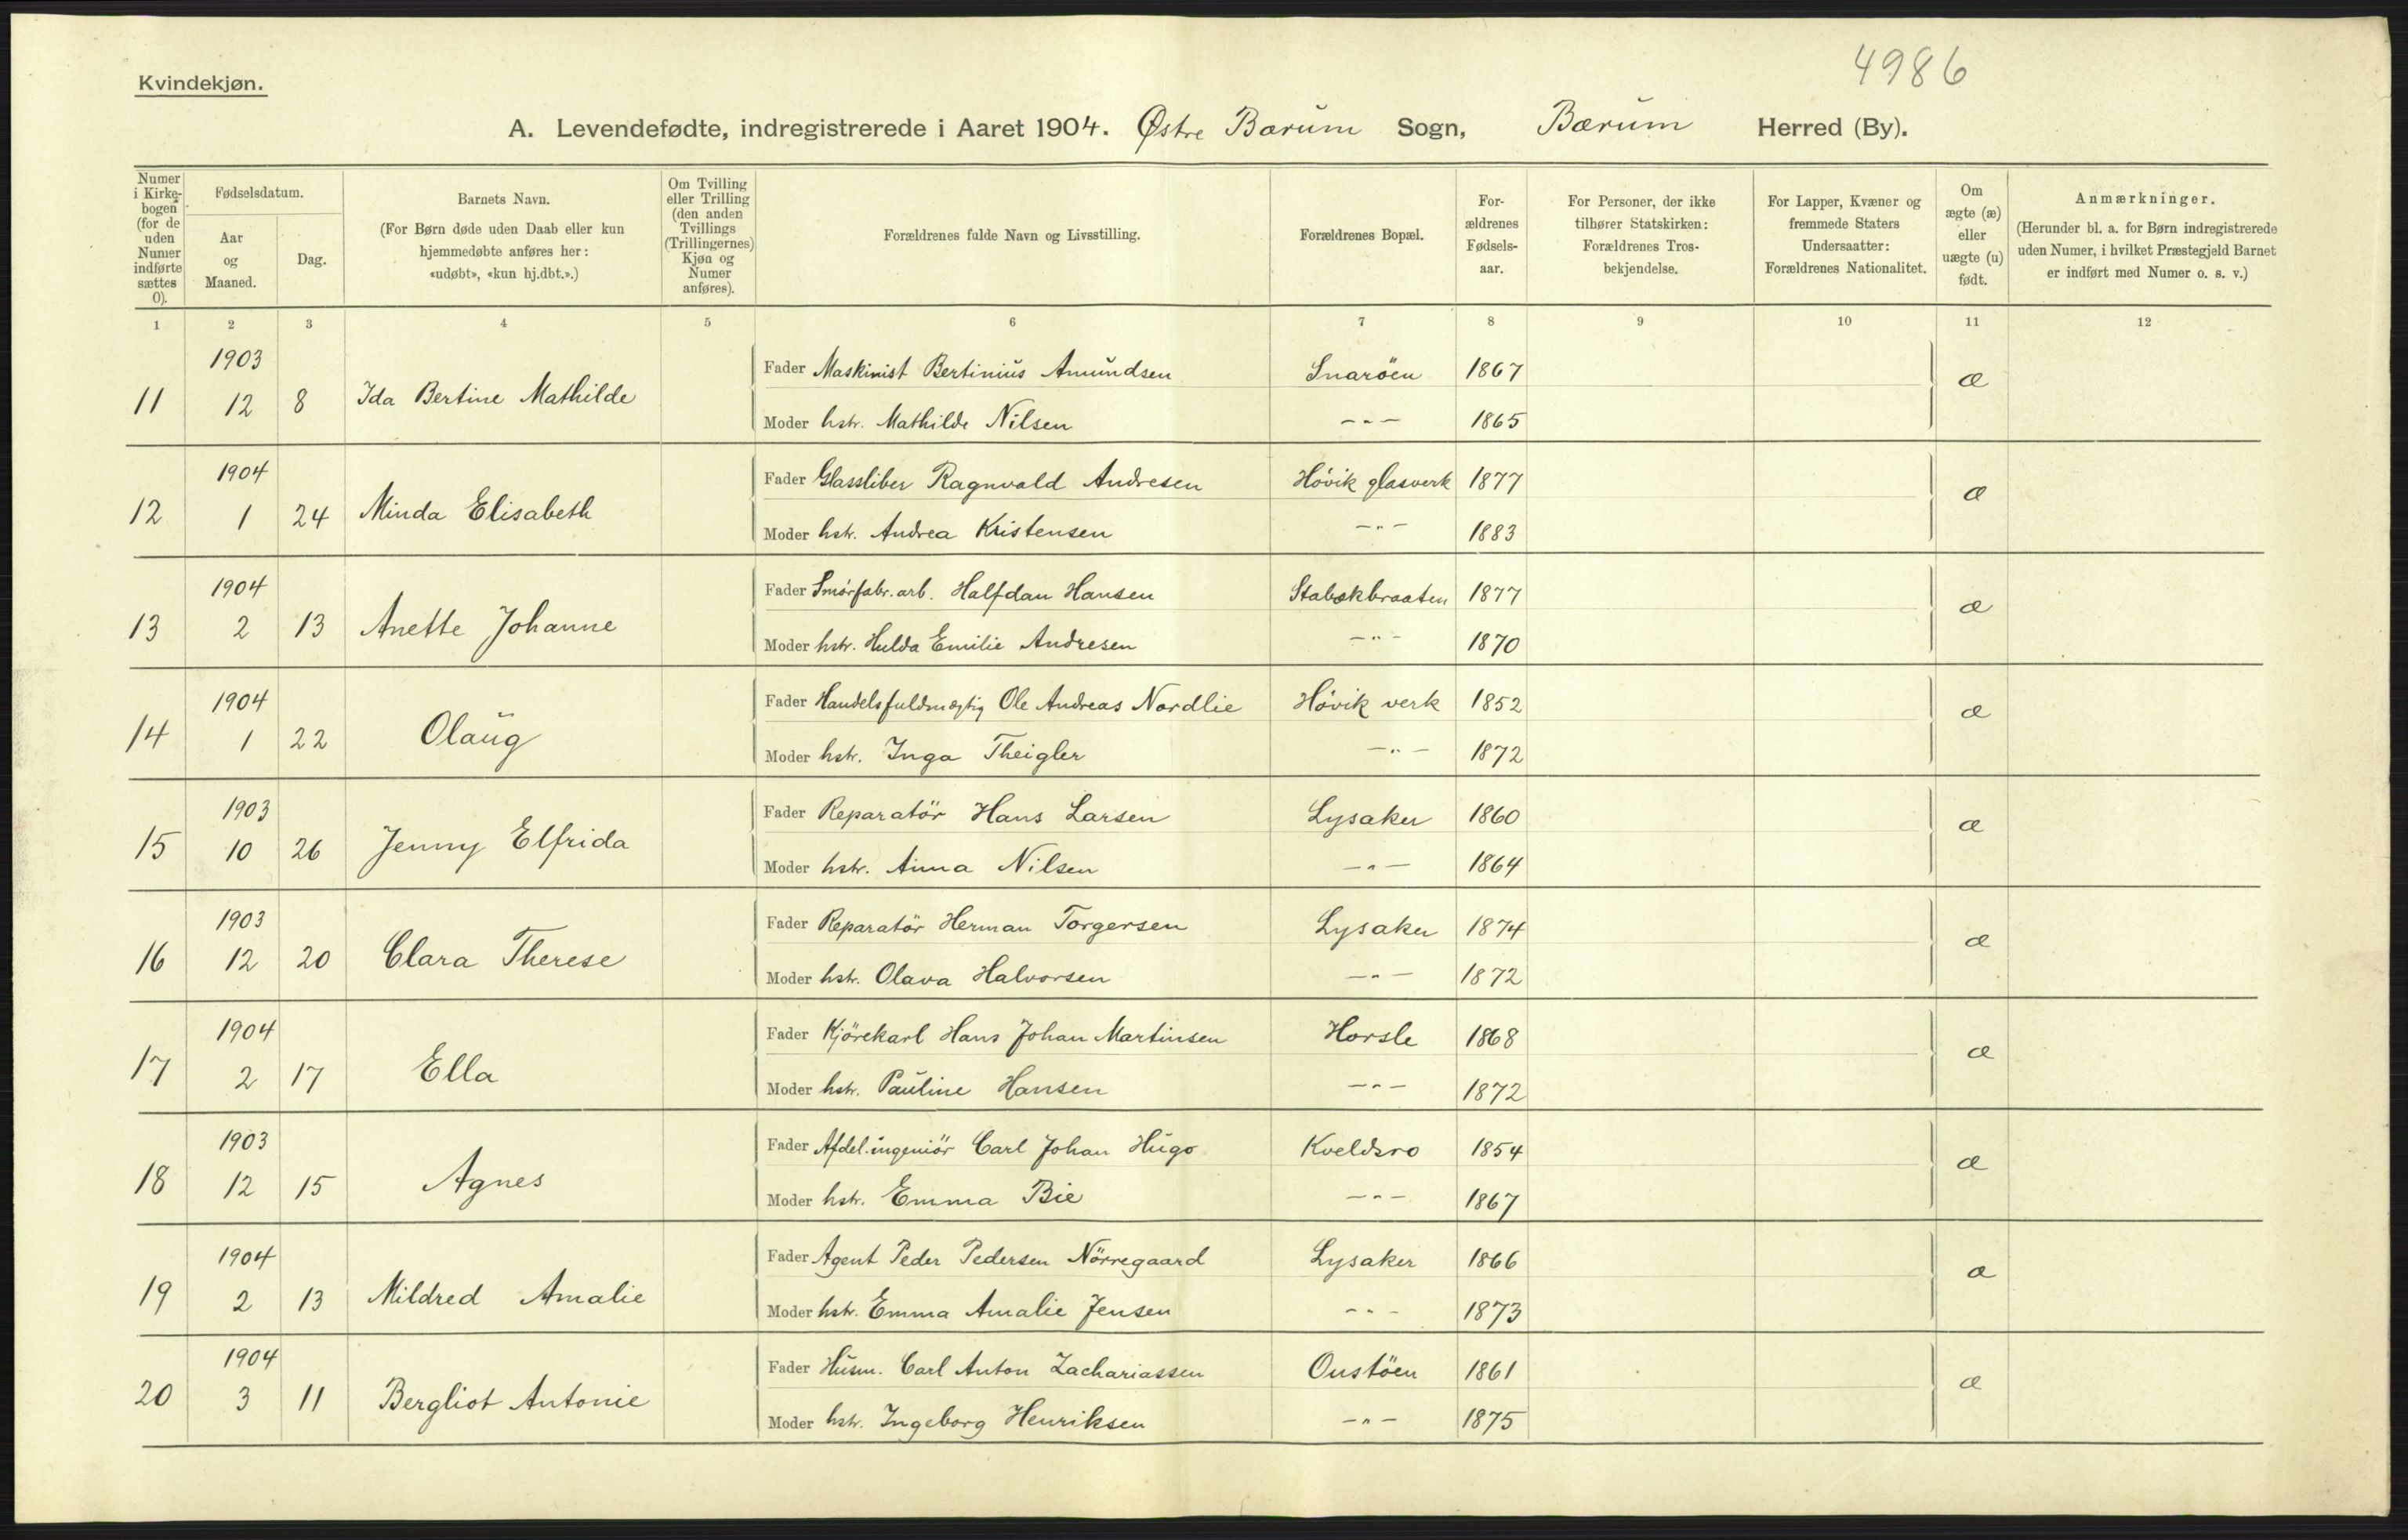 4986
Kvindekjøn.
A. Levendefødte, indregistrerede i Aaret 1904. Østre Bærum Sogn, Bærum Herred (By).
Numer i Kirkebogen (for de uden Numer indførte sættes 0).
Fødselsdatum.
Aar og Maaned.
Dag.
Barnets Navn.
(For Børn døde uden Daab eller kun hjemmedøbte anføres her: «udøbt», «kun hj.dbt.».)
Om Tvilling eller Trilling (den anden Tvillings (Trillingernes) Kjøn og Numer anføres).
Forældrenes fulde Navn og Livsstilling.
Forældrenes Bopæl.
Forældrenes Fødselsaar.
For Personer, der ikke tilhører Statskirken: Forældrenes Trosbekjendelse.
For Lapper, Kvæner og fremmede Staters Undersaatter: Forældrenes Nationalitet.
Om ægte (æ) eller uægte (u) født.
Anmærkninger.
(Herunder bl. a. for Børn indregistrerede uden Numer, i hvilket Præstegjeld Barnet er indført med Numer o. s. v.)
1 2 3 4 5 6 7 8 9 10 11 12
1903 Fader Maskinist Bertinius Amundsen Snaröen 1867 æ
11 12 8 Ida Bertine Mathilde
Moder hstr. Mathilde Nilsen -"- 1865
1904 Fader Glassliber Ragnvald Andresen Hövik glasverk 1877 æ
12 1 24 Minda Elisabeth
Moder hstr. Andrea Kristensen -"- 1883
1904 Fader Smörfabr.arb. Halfdan Hansen Stabækbraaten 1877 æ
13 2 13 Anette Johanne
Moder hstr. Hulda Emilie Andresen -"- 1870
1904 Fader Handelsfuldmægtig Ole Andreas Nordlie Hövik verk 1852 æ
14 1 22 Olaug
Moder hstr. Inga Theigler -"- 1872
1903 Fader Reparatör Hans Larsen Lysaker 1860 æ
15 10 26 Jenny Elfrida
Moder hstr. Anna Nilsen -"- 1864
1903 Fader Reparatör Herman Torgersen Lysaker 1874 æ
16 12 20 Clara Therese
Moder hstr. Olava Halvorsen -"- 1872
1904 Fader Kjörekarl Hans Johan Martinsen Horsle 1868 æ
17 2 17 Ella
Moder hstr. Pauline Hansen -"- 1872
1903 Fader Afdel.ingeniör Carl Johan Hugo Kveldsro 1854 æ
18 12 15 Agnes
Moder hstr. Emma Bie -"- 1867
1904 Fader Agent Peder Pedersen Nörregaard Lysaker 1866 æ
19 2 13 Mildred Amalie
Moder hstr. Emma Amalie Jensen -"- 1873
1904 Fader Husm. Carl Anton Zachariassen Oustöen 1861 æ
20 3 11 Bergliot Antonie
Moder hstr. Ingeborg Henriksen -"- 1875